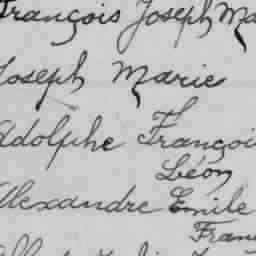 François Joseph Ma
Joseph Marie
Adolphe Françoi
Léon
Alexandre Emile
Fran